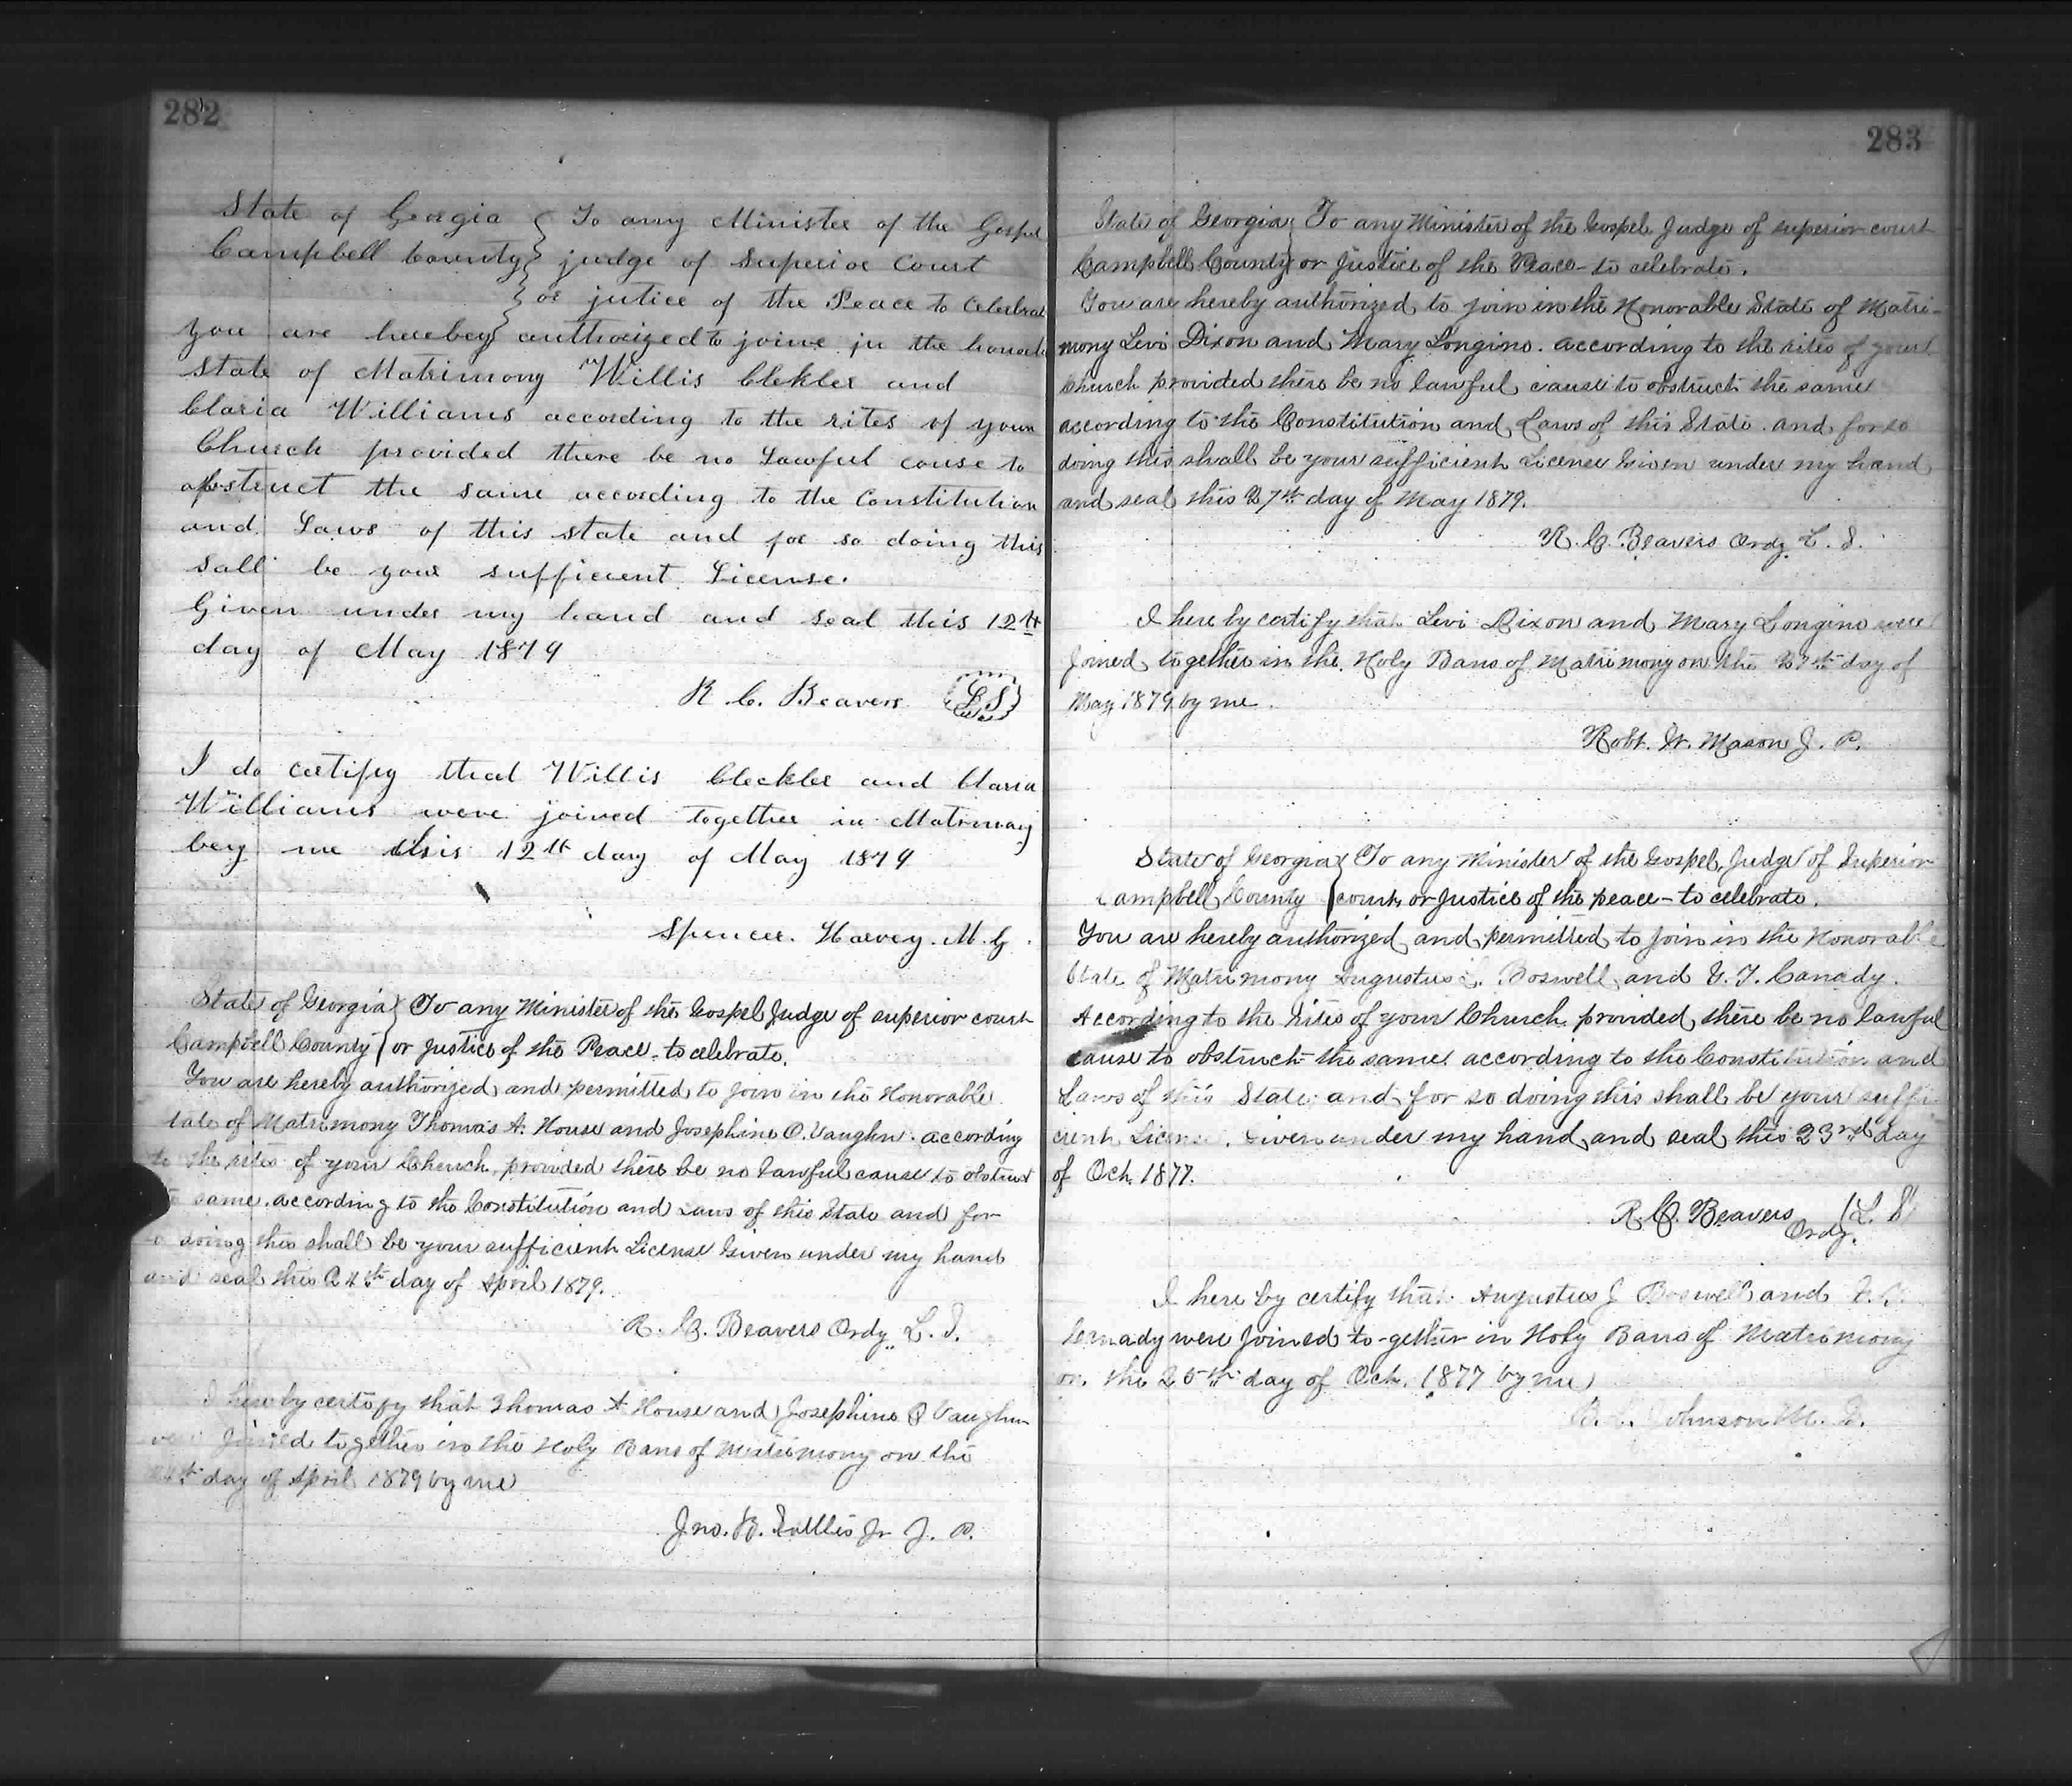 282
State of Georgia { To any Minister of the Gospel
Campbell County } judge of Superior Court
} or jutice of the Peace to Celebrat
you are herebey authorized to joine in the honorb
State of Matrimony Willis Clekler and
Claria Williams according to the rites of your
Church provided there be no Lawful couse to
obstruct the same according to the Constitution
and Laws of this state and for so doing this
Sall be your sufficient License.
Given under my hand and seal this 12th
day of May 1879
R. C. Beavers (LS)
I do certifey that Willis Cleckler and Claria
Williams were joined together in Matrimony
bey me this 12th day of May 1879
Spencer. Harvey. M. G.
State of Georgia } To any Minister of the Gospel Judge of superior court
Campbell County } or Justice of the Peace - to celebrate.
You are hereby authorized and permitted to join in the Honorable
tate of Matrimony Thomas A. House and Josephine O. Vaughn. according
to the rites of your Church provided there be no lawful cause to obstruct
same. according to the Constitution and Laws of this State and for
doing this shall be your sufficient License Given under my hand
and seal this 24th day of April 1879.
R. C. Beavers Ordy L. S.
I hereby certify that Thomas A House and Josephine O Vaughn
were Joined together in the Holy Bans of Matrimony on the
24th day of April 1879 by me
Jno. B. Jr J. P.
283
State of Georgia } To any Minister of the Gospel Judge of superior court
Campbell County } or Justice of the Peace - to celebrate.
You are hereby authorized to join in the Honorable State of Matri-
mony Levi Dixon and Mary Longino. according to the rites of your
church provided there be no lawful cause to obstruct the same
according to the Constitution and Laws of this State. and for so
doing this shall be your sufficient License Given under my hand
and seal this 27th day of May 1879.
R. C. Beavers Ordy L. S.
I here by certify that Levi Dixon and Mary Longino were
Joined together in the Holy Bans of Matrimony on the 27th day of
May 1879 by me.
Robt. W. Mason J. P.
State of Georgia } To any Minister of the Gospel, Judge of Superior
Campbell County } court or Justice of the peace - to celebrate.
You are hereby authorized and permitted to Join in the Honorable
State of Matrimony Augustus Boswell and Canady.
According to the rites of your Church provided there be no lawful
cause to obstruct the same according to the Constitution and
Laws of this State and for so doing this shall be your suffi
cient License. Given under my hand and seal this 23rd day
of Oct. 1877.
R. C. Beavers (L. S)
Ordy.
I here by certify that Augustus J Boswell and
Canady were Joined to-gether in Holy Bans of Matrimony
on the 25th day of Oct. 1877 by me
Johnson M. G.